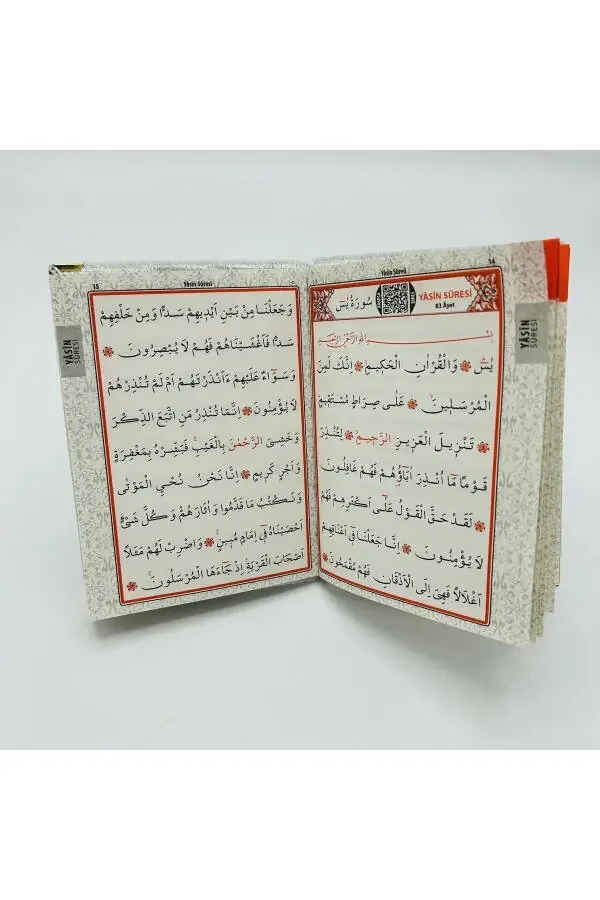 14
Yâsin Sûresi
سُورَةُ يٰسٓ
YÂSİN SÛRESİ
83 Âyet
YÂSİN
SÛRESİ
بِسْمِ اللّٰهِ الرَّحْمٰنِ الرَّحٖيمِ
يٰسٓ ۚ وَالْقُرْاٰنِ الْحَكٖيمِۙ اِنَّكَ لَمِنَ
الْمُرْسَلٖينَۙ عَلٰى صِرَاطٍ مُسْتَقٖيمٍ
تَنْزٖيلَ الْعَزٖيزِ الرَّحٖيمِۙ لِتُنْذِرَ
قَوْمًا مَٓا اُنْذِرَ اٰبَٓاؤُ۬هُمْ فَهُمْ غَافِلُونَ
لَقَدْ حَقَّ الْقَوْلُ عَلٰٓى اَكْثَرِهِمْ فَهُمْ
لَا يُؤْمِنُونَ اِنَّا جَعَلْنَا فٖٓي اَعْنَاقِهِمْ
اَغْلَالًا فَهِيَ اِلَى الْاَذْقَانِ فَهُمْ مُقْمَحُونَ
15
Yâsin Sûresi
YÂSİN
SÛRESİ
وَجَعَلْنَا مِنْ بَيْنِ اَيْدٖيهِمْ سَدًّا وَمِنْ خَلْفِهِمْ
سَدًّا فَاَغْشَيْنَاهُمْ فَهُمْ لَا يُبْصِرُونَ
وَسَوَٓاءٌ عَلَيْهِمْ ءَاَنْذَرْتَهُمْ اَمْ لَمْ تُنْذِرْهُمْ
لَا يُؤْمِنُونَ اِنَّمَا تُنْذِرُ مَنِ اتَّبَعَ الذِّكْرَ
وَخَشِيَ الرَّحْمٰنَ بِالْغَيْبِۚ فَبَشِّرْهُ بِمَغْفِرَةٍ
وَاَجْرٍ كَرٖيمٍ اِنَّا نَحْنُ نُحْيِ الْمَوْتٰى
وَنَكْتُبُ مَا قَدَّمُوا وَاٰثَارَهُمْۜ وَكُلَّ شَيْءٍ
اَحْصَيْنَاهُ فٖٓي اِمَامٍ مُبٖينٍ۟ وَاضْرِبْ لَهُمْ مَثَلًا
اَصْحَابَ الْقَرْيَةِۢ اِذْ جَٓاءَهَا الْمُرْسَلُونَۚ